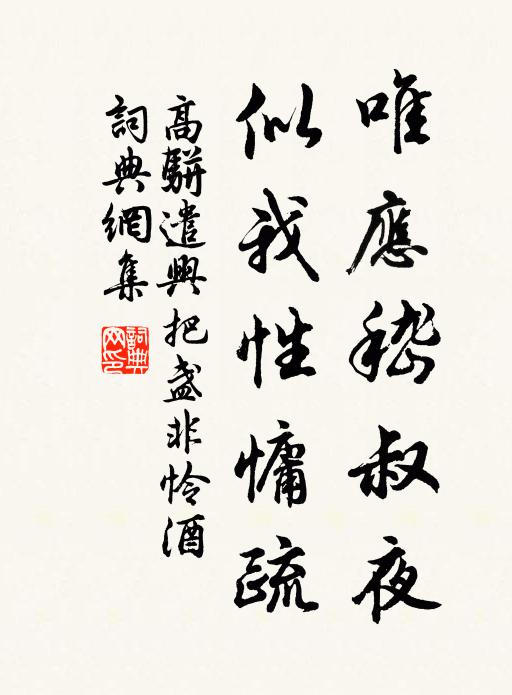 唯應嵇叔夜
似我性慵疏
高駢遣興把盞非怜酒
詞典網集
詞典網印